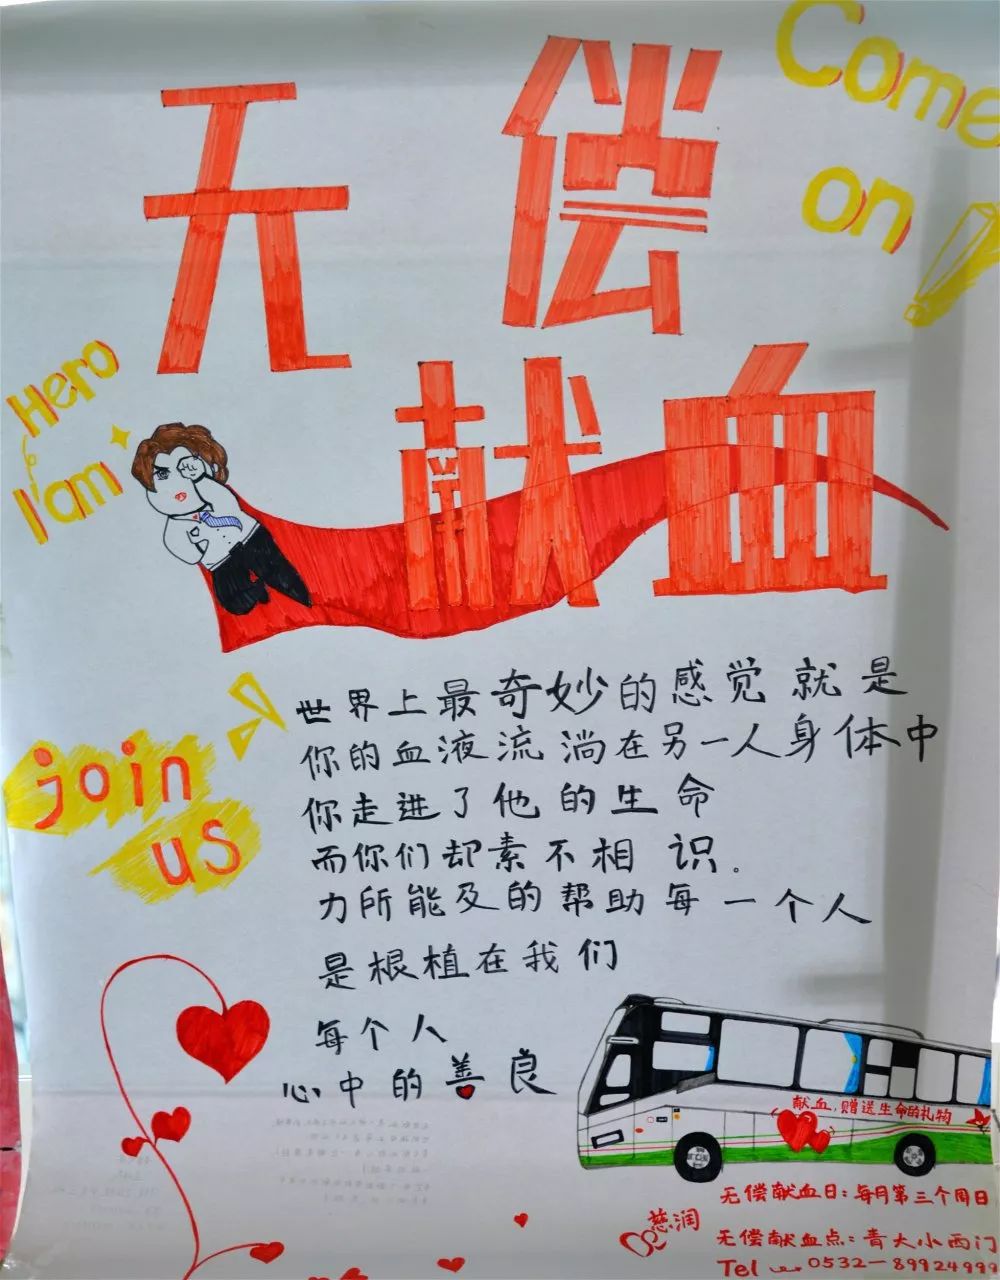 无偿
献血
Come
on
Hero
I am
join
us
世界上最奇妙的感觉就是
你的血液流淌在另一人身体中
你走进了他的生命
而你们却素不相识。
力所能及的帮助每一个人
是根植在我们
每个人
心中的善良
献血,赠送生命的礼物
无偿献血日:每月第三个周日
慈润
无偿献血点:青大小西门
Tel 0532-89924999